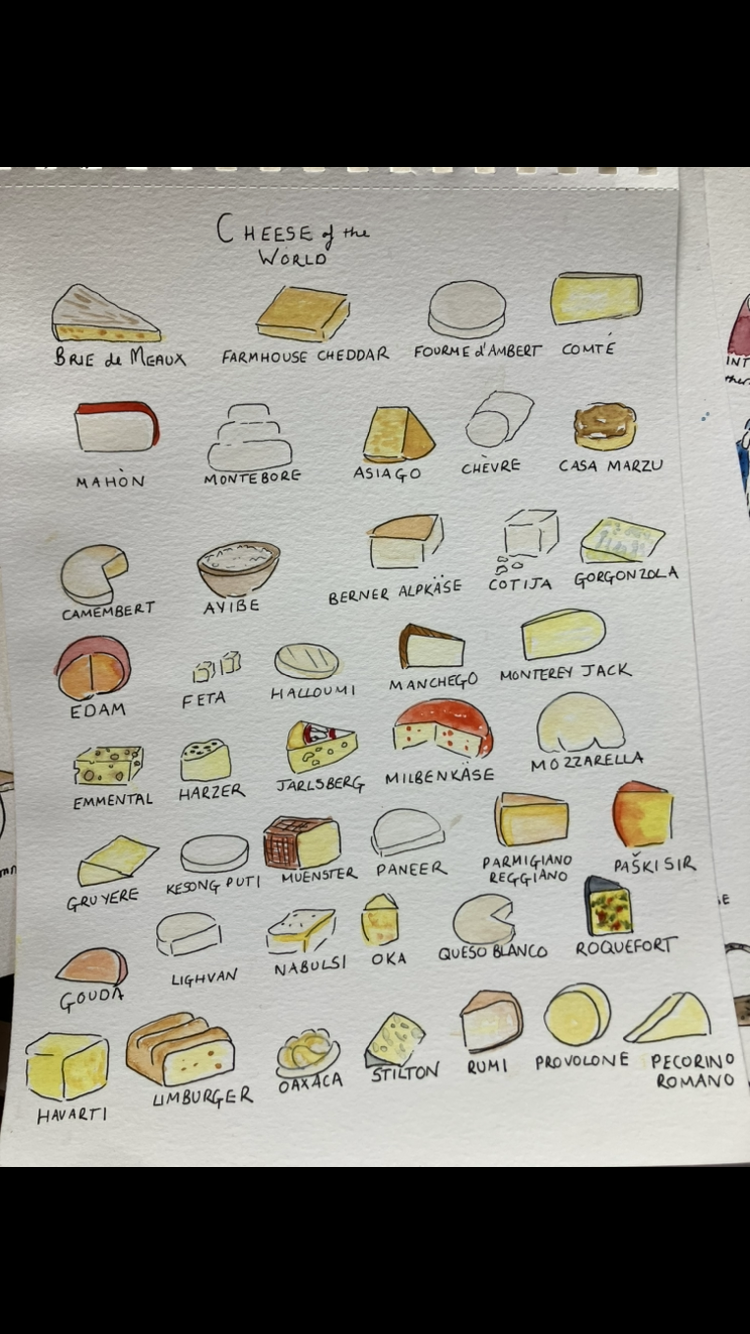 CHEESE of the
WORLD
BRIE de MEAUX
FARMHOUSE CHEDDAR
FOURME d'AMBERT
COMTÉ
MAHÒN
MONTEBORE
ASIAGO
CHÈVRE
CASA MARZU
CAMEMBERT
AYIBE
BERNER ALPKÄSE
COTIJA
GORGONZOLA
EDAM
FETA
HALLOUMI
MANCHEGO
MONTEREY JACK
EMMENTAL
HARZER
JARLSBERG
MILBENKÄSE
MOZZARELLA
GRUYERE
KESONG PUTI
MUENSTER
PANEER
PARMIGIANO
REGGIANO
PAŠKI SIR
GOUDA
LIGHVAN
NABULSI
OKA
QUESO BLANCO
ROQUEFORT
HAVARTI
LIMBURGER
OAXACA
STILTON
RUMI
PROVOLONE
PECORINO
ROMANO
INT